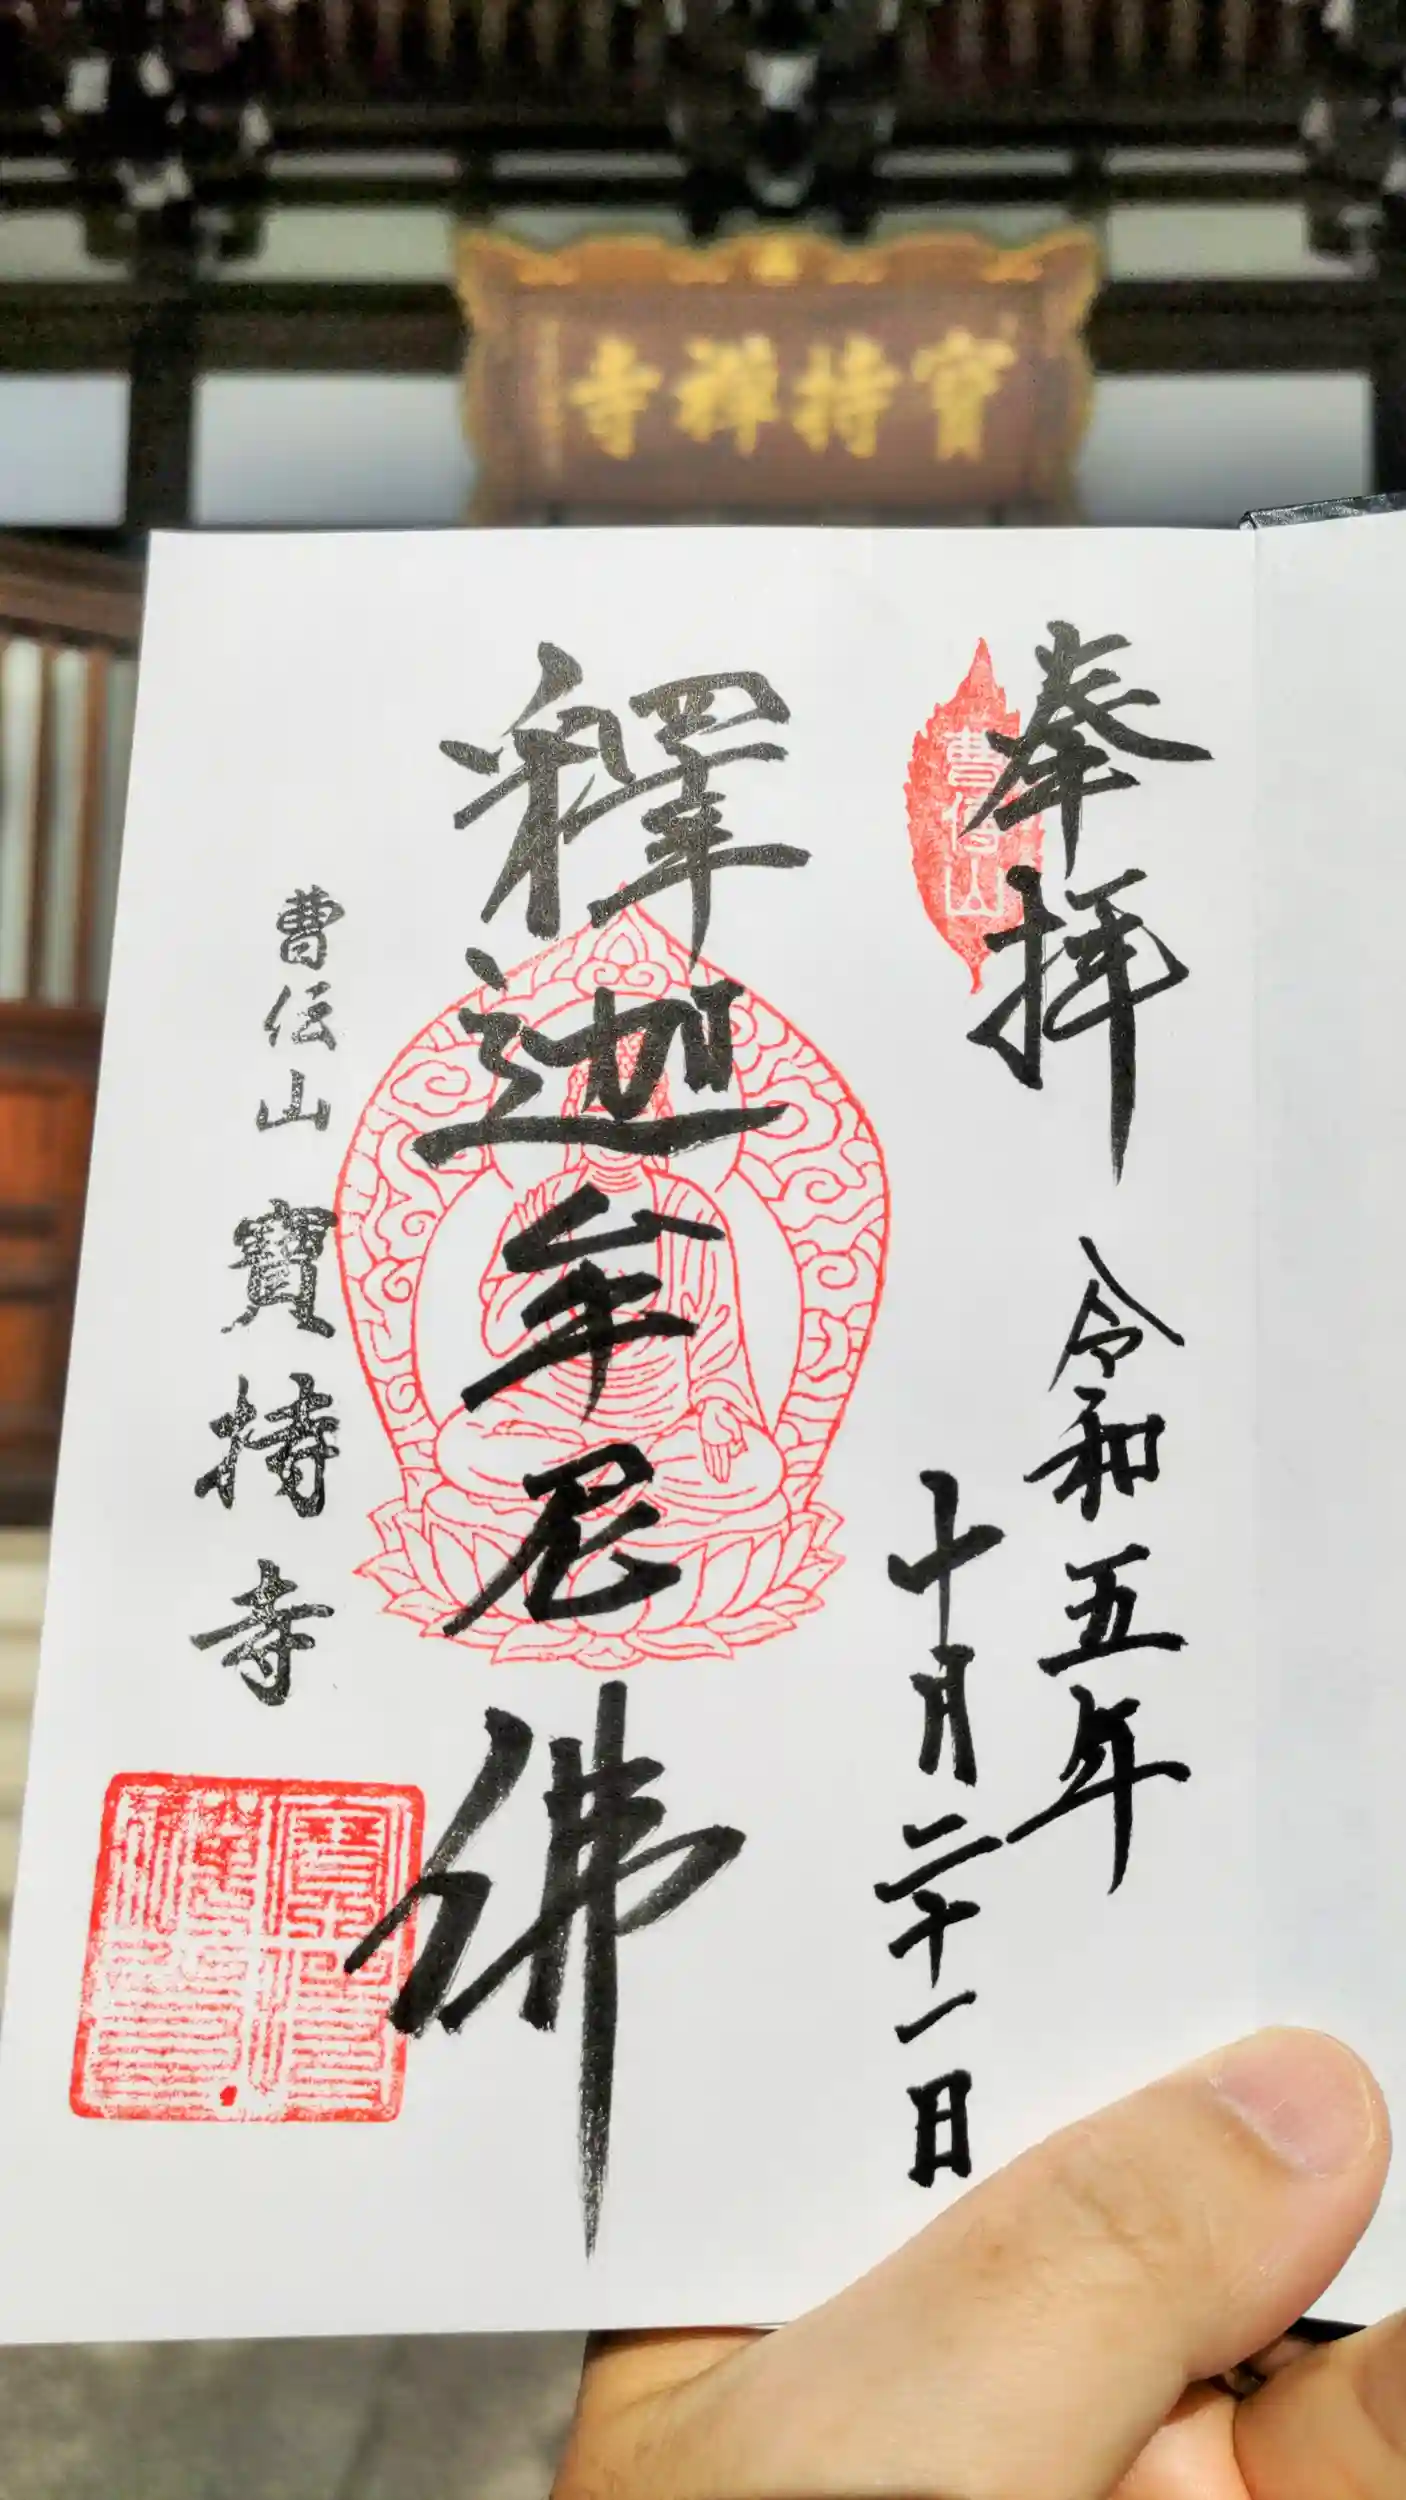 寶持禅寺
奉拝
曹傳山
令和五年
十月二十一日
釋迦牟尼佛
曹伝山
寶持寺